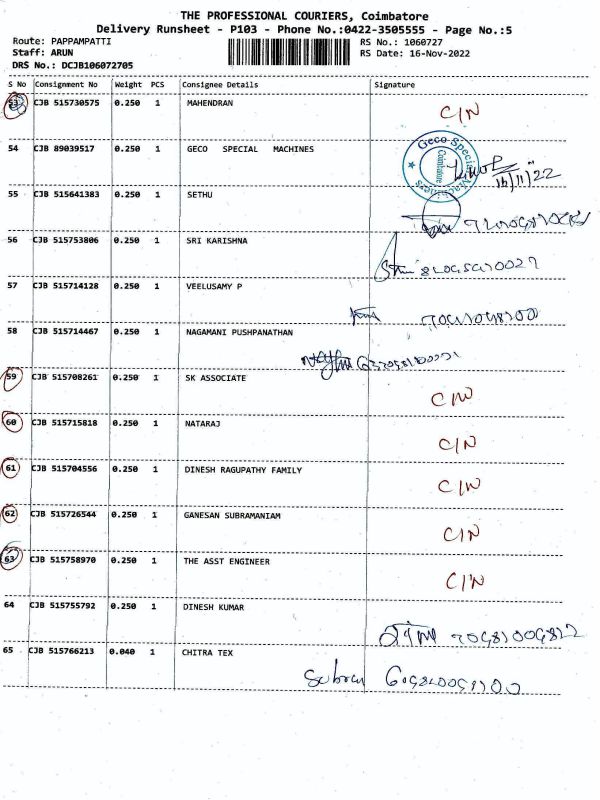 THE PROFESSIONAL COURIERS, Coimbatore
Delivery Runsheet - P103 - Phone No.:0422-3505555 - Page No.:5
Route: PAPPAMPATTI RS No.: 1060727
Staff: ARUN RS Date: 16-Nov-2022
DRS No.: DCJB106072705
S No Consignment No Weight PCS Consignee Details Signature
53 CJB 515730575 0.250 1 MAHENDRAN C/N
54 CJB 89039517 0.250 1 GECO SPECIAL MACHINES
Geco Special Machines
Coimbatore
16/11/22
55 CJB 515641383 0.250 1 SETHU
56 CJB 515753806 0.250 1 SRI KARISHNA
57 CJB 515714128 0.250 1 VEELUSAMY P
58 CJB 515714467 0.250 1 NAGAMANI PUSHPANATHAN
59 CJB 515708261 0.250 1 SK ASSOCIATE C/N
60 CJB 515715818 0.250 1 NATARAJ C/N
61 CJB 515704556 0.250 1 DINESH RAGUPATHY FAMILY C/N
62 CJB 515726544 0.250 1 GANESAN SUBRAMANIAM C/N
63 CJB 515758970 0.250 1 THE ASST ENGINEER C/N
64 CJB 515755792 0.250 1 DINESH KUMAR
65 CJB 515766213 0.040 1 CHITRA TEX